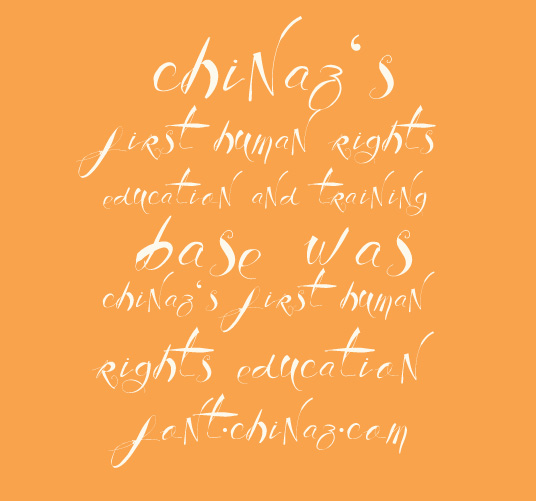 chiNaz's
first human rights
education and training
base was
chiNaz's first human
rights education
font.chiNaz.com